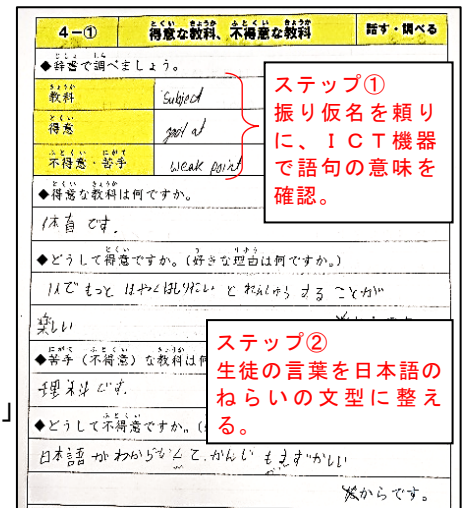 4－①
得意な教科、不得意な教科
話す・調べる
◆辞書で調べましょう。
教科
Subject
得意
good at
不得意・苦手
weak point
ステップ①
振り仮名を頼り
に、ＩＣＴ機器
で語句の意味を
確認。
◆得意な教科は何ですか。
体育です.
◆どうして得意ですか。（好きな理由は何ですか。）
1人でもっとはやくはしりたいとれんしゅうすることが
楽しい
ステップ②
生徒の言葉を日本語の
ねらいの文型に整え
る。
◆苦手（不得意）な教科は何
理科です.
◆どうして不得意ですか。（
日本語がわからなくて、かんじもむずかしい
からです。
」